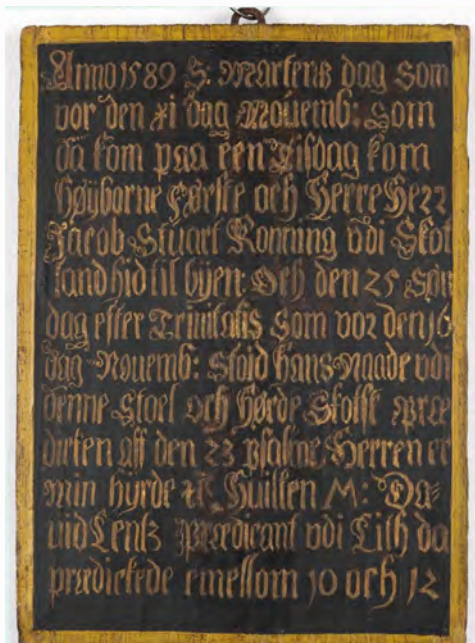 Anno 1589 S: Martens dag Som
vor den xi dag Nouemb: som
da kom paa een Tisdag kom
Høyborne Første och Herre Herr
Jacob Stuart Konning vdi Skot
land hid til byen och den 25 Søn
dag effter Trinitatis som vor den 16
dag Nouemb: stoid hans Naade vdi
denne Stoel och hørde Skotsk præ
dicken aff den 23 psalme Herren er
min hyrde etc huilken M: Da=
uid Lentz Prædicant vdi Lith da
prædickede emellom 10 och 12